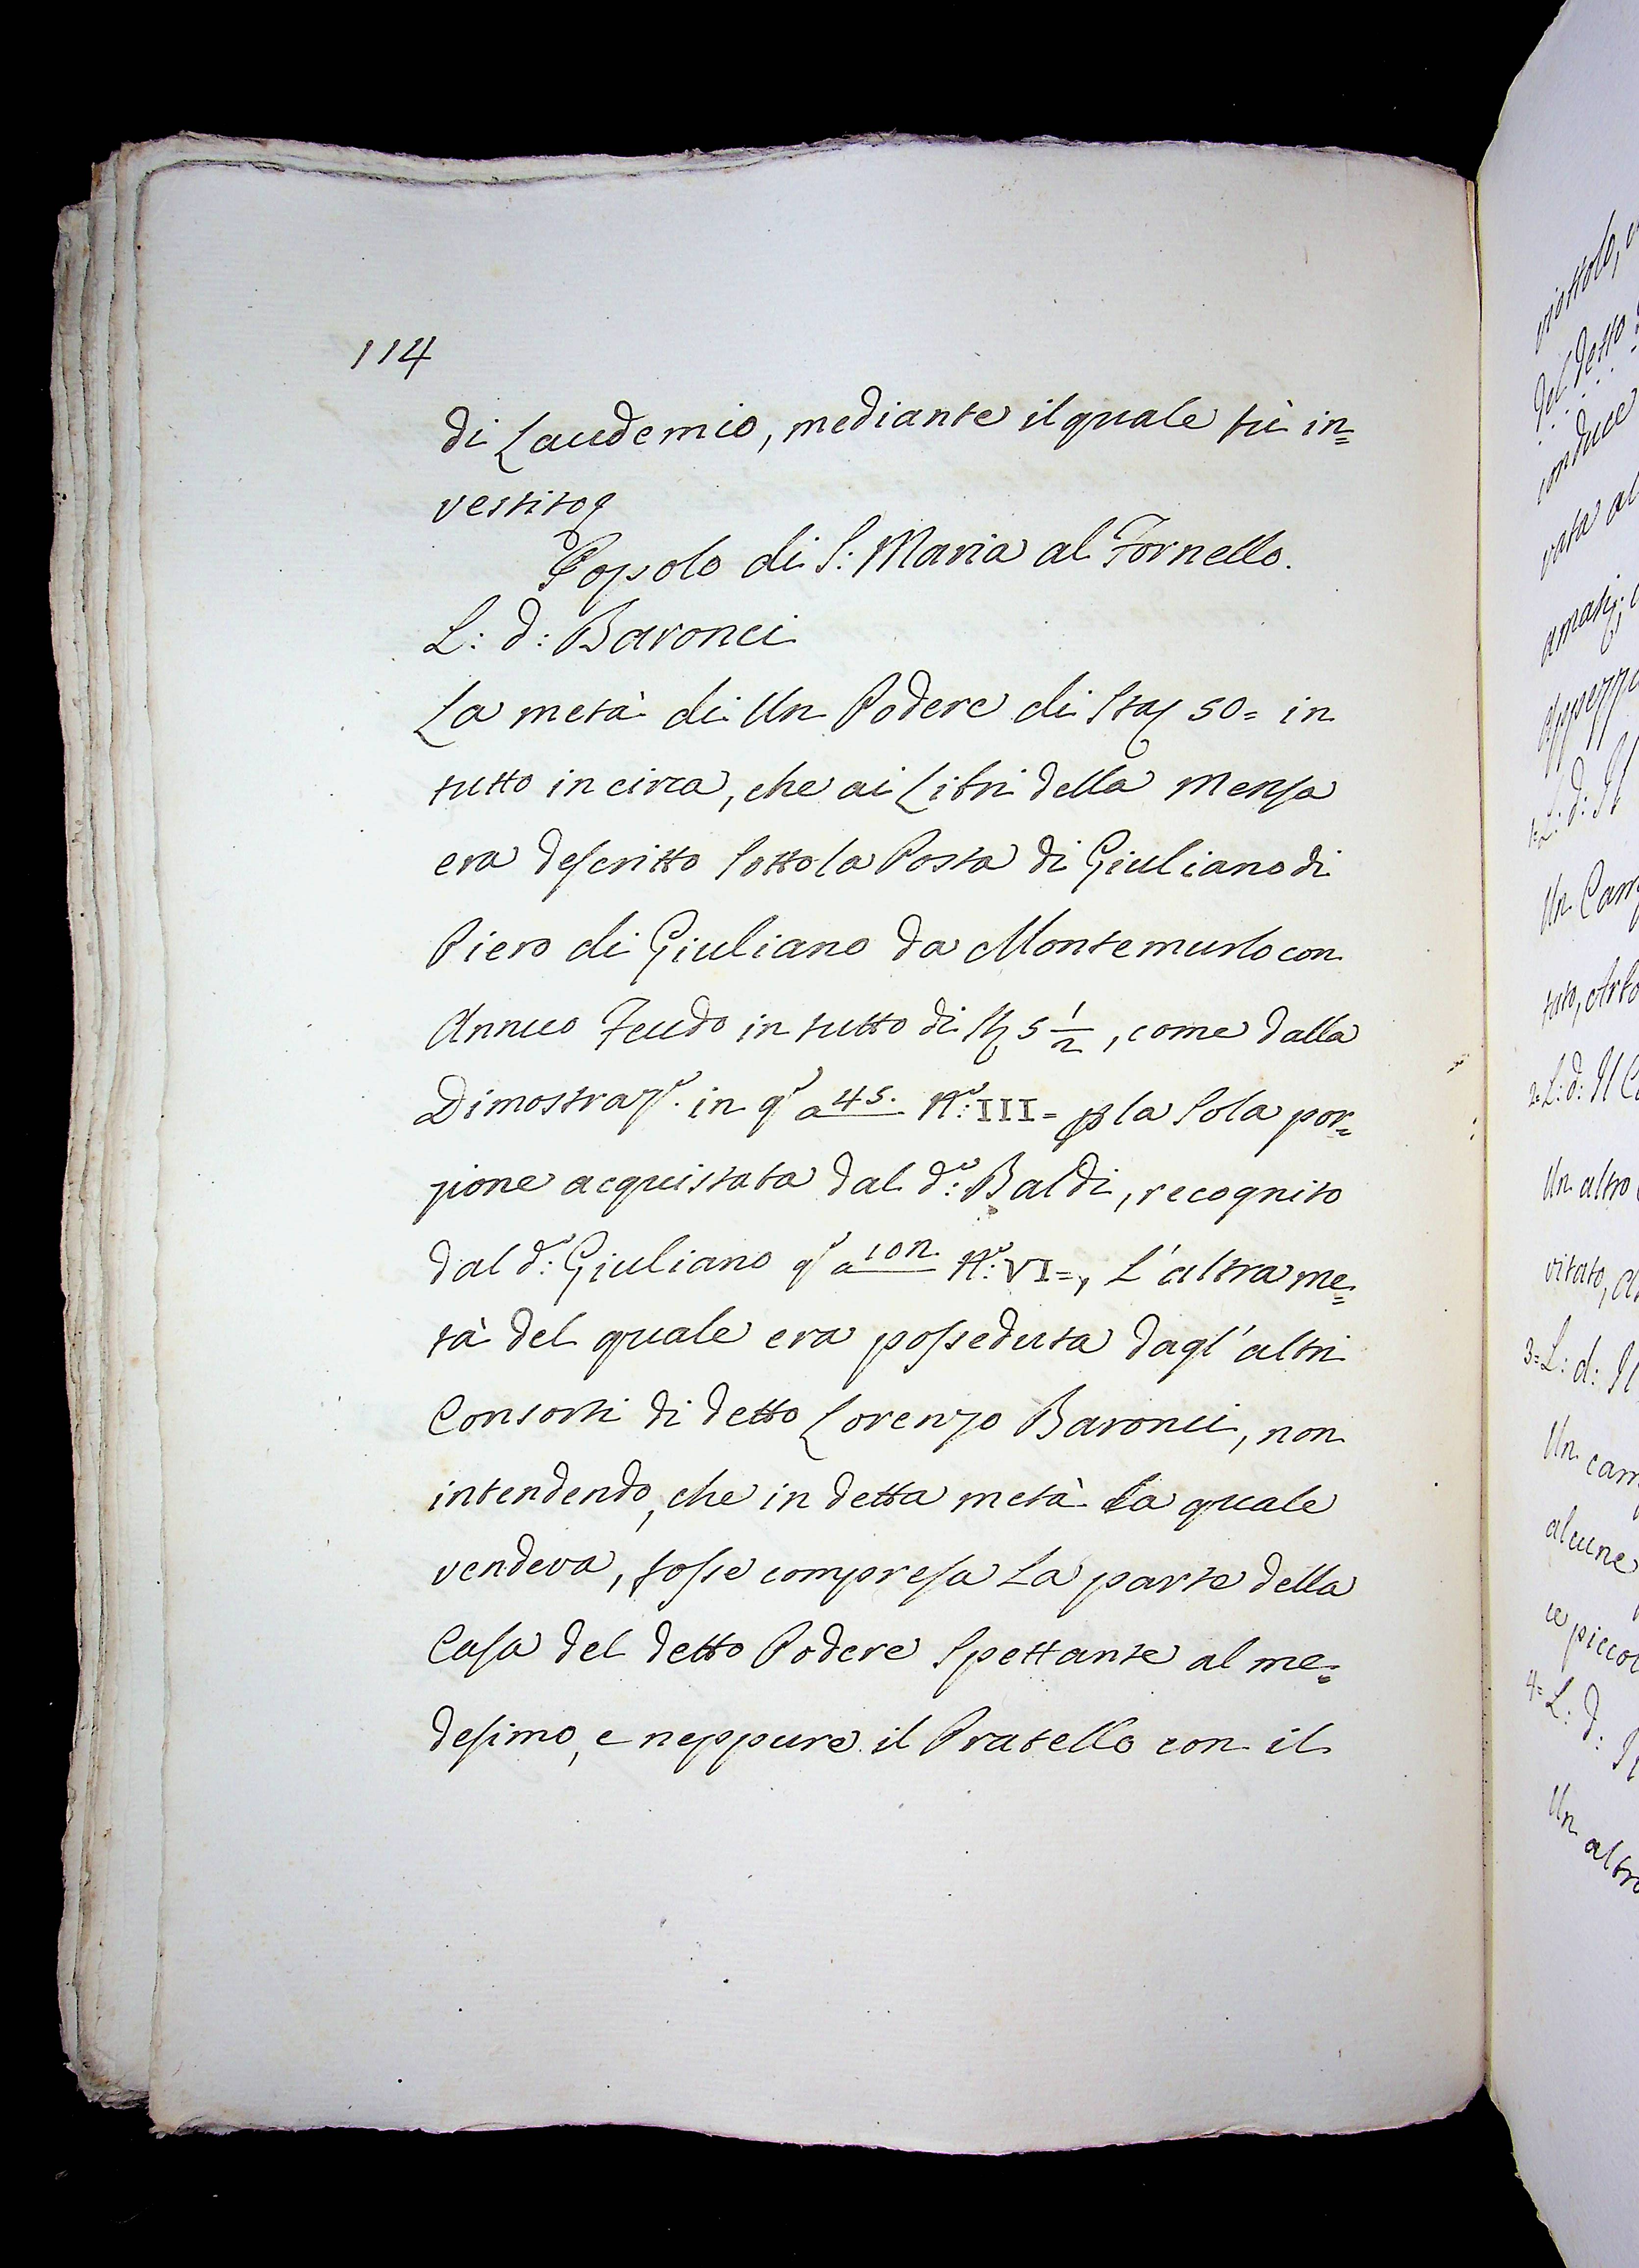 114
di Laudemio, mediante il quale fù in=
vestito
Popolo di S: Maria al Fornello.
L: d: Baronci
La metà di Un Podere di Sta 50= in
tutto in circa, che ai Libri della Mensa
era descritto sotto la Posta di Giuliano di
Piero di Giuliano da Montemurlo con
Annuo Feudo in tutto di 5 1/2, come dalla
Dimostraz.e in q.o a 45. N.o: III= p la sola por=
zione acquistata dal d.o: Baldi, recognito
dal d.o: Giuliano q.o a N.o: VI=, L'altra me=
tà del quale era posseduta dagl'altri
Consorti di detto Lorenzo Baronci, non
intendendo, che in detta metà La quale
vendeva, fosse compresa La parte della
Casa del detto Podere Spettante al me=
desimo, e neppure il Pratello con il
viottolo,
del detto
conduce
vata al
1= L: d: Il
Un Cam
2= L: d: Il C
Un altro
vitato,
3= L: d: Il
Un cam
alcune
e piccol
4= L: d:
Un altro